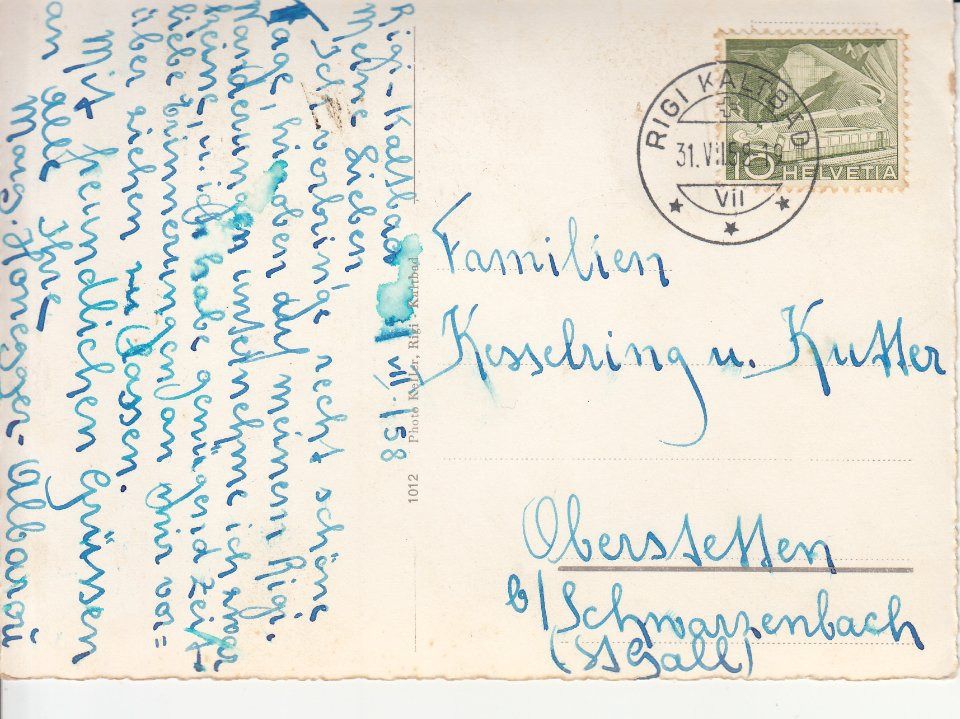 Rigi-Kaltbad VII. 58
Meine Lieben!
Ich verbringe recht schöne
Tage hier oben auf meinem Rigi.
Wanderungen unternehme ich zwar
keine, und ich habe genügend Zeit
liebe Erinnerungen an mir vor=
über ziehen zu lassen.
Mit freundlichen Grüssen
an alle Ihre
Marg. Honegger-
RIGI KALTBAD
31.VII.58-18
VII
10 HELVETIA
Familien
Kesselring u. Kutter
Oberstetten
b/ Schwarzenbach
(St Gall)
1012 Photo Keller, Rigi-Kaltbad